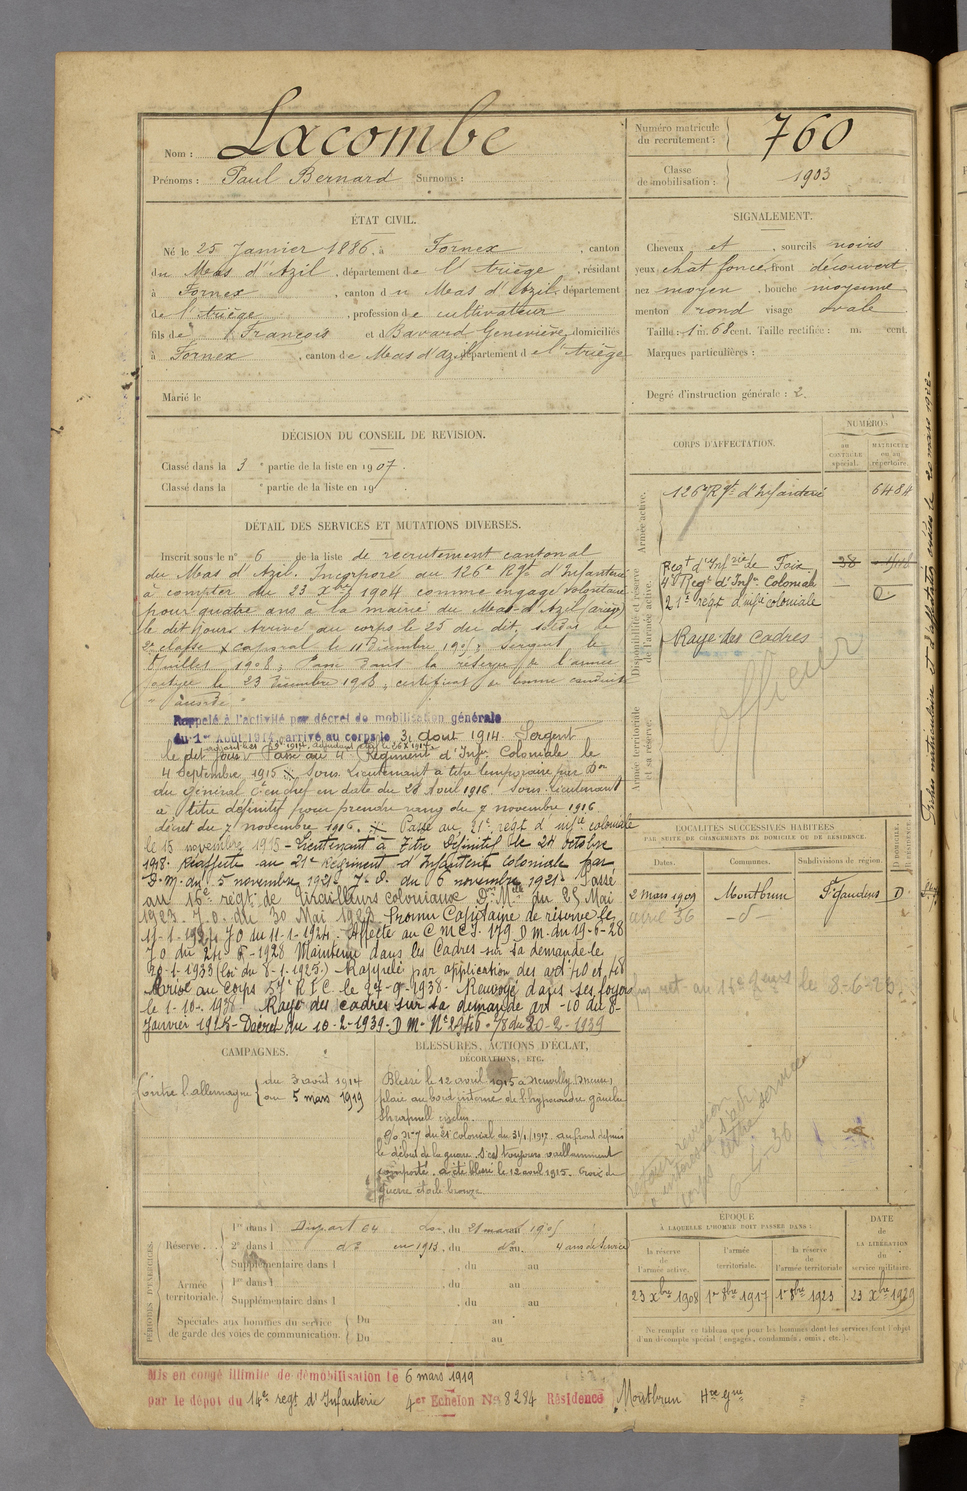 Nom : Lacombe
Prénoms : Paul Bernard Surnoms :
Numéro matricule du recrutement : 760
Classe de mobilisation : 1903
ÉTAT CIVIL.
Né le 25 Janvier 1886, à Fornex, canton
du Mas d'Azil, département de l'Ariège, résidant
à Fornex, canton du Mas d'Azil, département
de l'Ariège, profession de cultivateur
fils de François et Bavard Geneviève, domiciliés
à Fornex, canton de Mas d'Azil, département de l'Ariège
Marié le
SIGNALEMENT.
Cheveux et, sourcils noirs
yeux chat foncé, front découvert,
nez moyen, bouche moyenne
menton rond visage ovale
Taille : 1 m. 68 cent. Taille rectifiée : m. cent.
Marques particulières :
Degré d'instruction générale : 2.
DÉCISION DU CONSEIL DE REVISION.
Classé dans la 3e partie de la liste en 1907.
Classé dans la e partie de la liste en 19
DÉTAIL DES SERVICES ET MUTATIONS DIVERSES.
Inscrit sous le n° 6 de la liste de recrutement cantonal
du Mas d'Azil. Incorporé au 126e Rgt d'Infanterie
à compter du 23 Xbre 1904 comme engagé volontaire
pour quatre ans à la mairie du Mas d'Azil (Ariège)
le dit jour. Arrivé au corps le 25 du dit, soldat de
2e classe caporal le 11 Décembre 1905; Sergent le
Juillet 1908; Passé dans la réserve de l'armée
active le 23 Décembre 1908, certificat de bonne conduite
"accordé"
Rappelé à l'activité par décret de mobilisation générale
du 1er Août 1914, arrivé au corps le 3 Août 1914. Sergent
le dit jour Passé au 4e Régiment d'Infie Coloniale le
4 Septembre 1915 Sous Lieutenant à titre temporaire par Don
du Général Ct en chef en date du 28 Avril 1916. Sous-Lieutenant
à titre définitif pour prendre rang du 7 novembre 1916
décret du 7 novembre 1916. Passé au 21e regt d'infie coloniale
le 15 novembre 1915 - Lieutenant à Titre Définitif le 24 octobre
1918. Réaffecté au 21e Régiment d'Infanterie coloniale par
D.m. du 5 novembre 1921. J.O. du 6 novembre 1921. Passé
au 16e regt de Tirailleurs coloniaux D.Mlle du 25 Mai
1923. J.O. du 30 Mai 1923 Promu Capitaine de réserve le
11-1-1924 JO du 11-1-1924. Affecté au C M C I. 179 D M. du 19-6-28
JO du 24-6-1928 Maintenu dans les Cadres sur sa demande le
20-1-1933 (loi du 8-1-1925.) Rappelé par application des art 40 et 48
Arrivé au corps R I C. le 27-9-1938- Renvoyé dans ses foyers
le 1-10-1938 Rayé des cadres sur sa demande art-10 du 8-
Janvier 1925- Décret du 10-2-1939-D M- du 20-2-1939
CORPS D'AFFECTATION.
NUMÉROS
au CONTRÔLE spécial.
MATRICULE ou au répertoire.
Armée active.
126e Rgt d'Infanterie 6484
Disponibilité et réserve de l'armée active.
Regt d'Infrie de Foix 38
4e Regt d'Infie Coloniale
21e regt d'infie coloniale O
Rayé des Cadres
officier
Armée territoriale et sa réserve.
LOCALITÉS SUCCESSIVES HABITÉES
PAR SUITE DE CHANGEMENTS DE DOMICILE OU DE RÉSIDENCE.
Dates. Communes. Subdivisions de région. D DOMICILE. R RÉSIDENCE.
2 mars 1909 Montbrun St Gaudens D
avril 36 -d-
6-4-36
CAMPAGNES.
Contre l'allemagne du 3 août 1914
au 5 mars 1919
BLESSURES, ACTIONS D'ÉCLAT,
DÉCORATIONS, ETC.
Blessé le 12 avril 1915 à (Meuse)
plaie au bord interne de l'hypocondre gauche
Shrapnell
O/o N° 7 du 21e colonial du 31/1/1917. au front depuis
le début de la guerre. S'est toujours vaillamment
comporté. a été blessé le 12 avril 1915. Croix de
guerre étoile bronze.
PÉRIODES D'EXERCICES.
Réserve
1re dans l Disp art 64 du 21 mars 1905
2e dans l do en 1913, du do au 4 ans de Service
Supplémentaire dans l , du au
Armée territoriale.
1re dans l , du au
Supplémentaire dans l , du au
Spéciales aux hommes du service de garde des voies de communication.
Du au
Du au
ÉPOQUE
À LAQUELLE L'HOMME DOIT PASSER DANS :
la réserve de l'armée active.
l'armée territoriale.
la réserve de l'armée territoriale
DATE de LA LIBÉRATION du service militaire.
23 Xbre 1908 1er 8bre 1917 1er 8bre 1923 23 Xbre 1929
Ne remplir ce tableau que pour les hommes dont les services font l'objet
d'un décompte spécial (engagés, condamnés, omis, etc.).
Mis en congé illimité de démobilisation le 6 mars 1919
par le dépôt du 14e regt d'Infanterie 4er Echelon No 8284 Résidence Montbrun Hte Gne